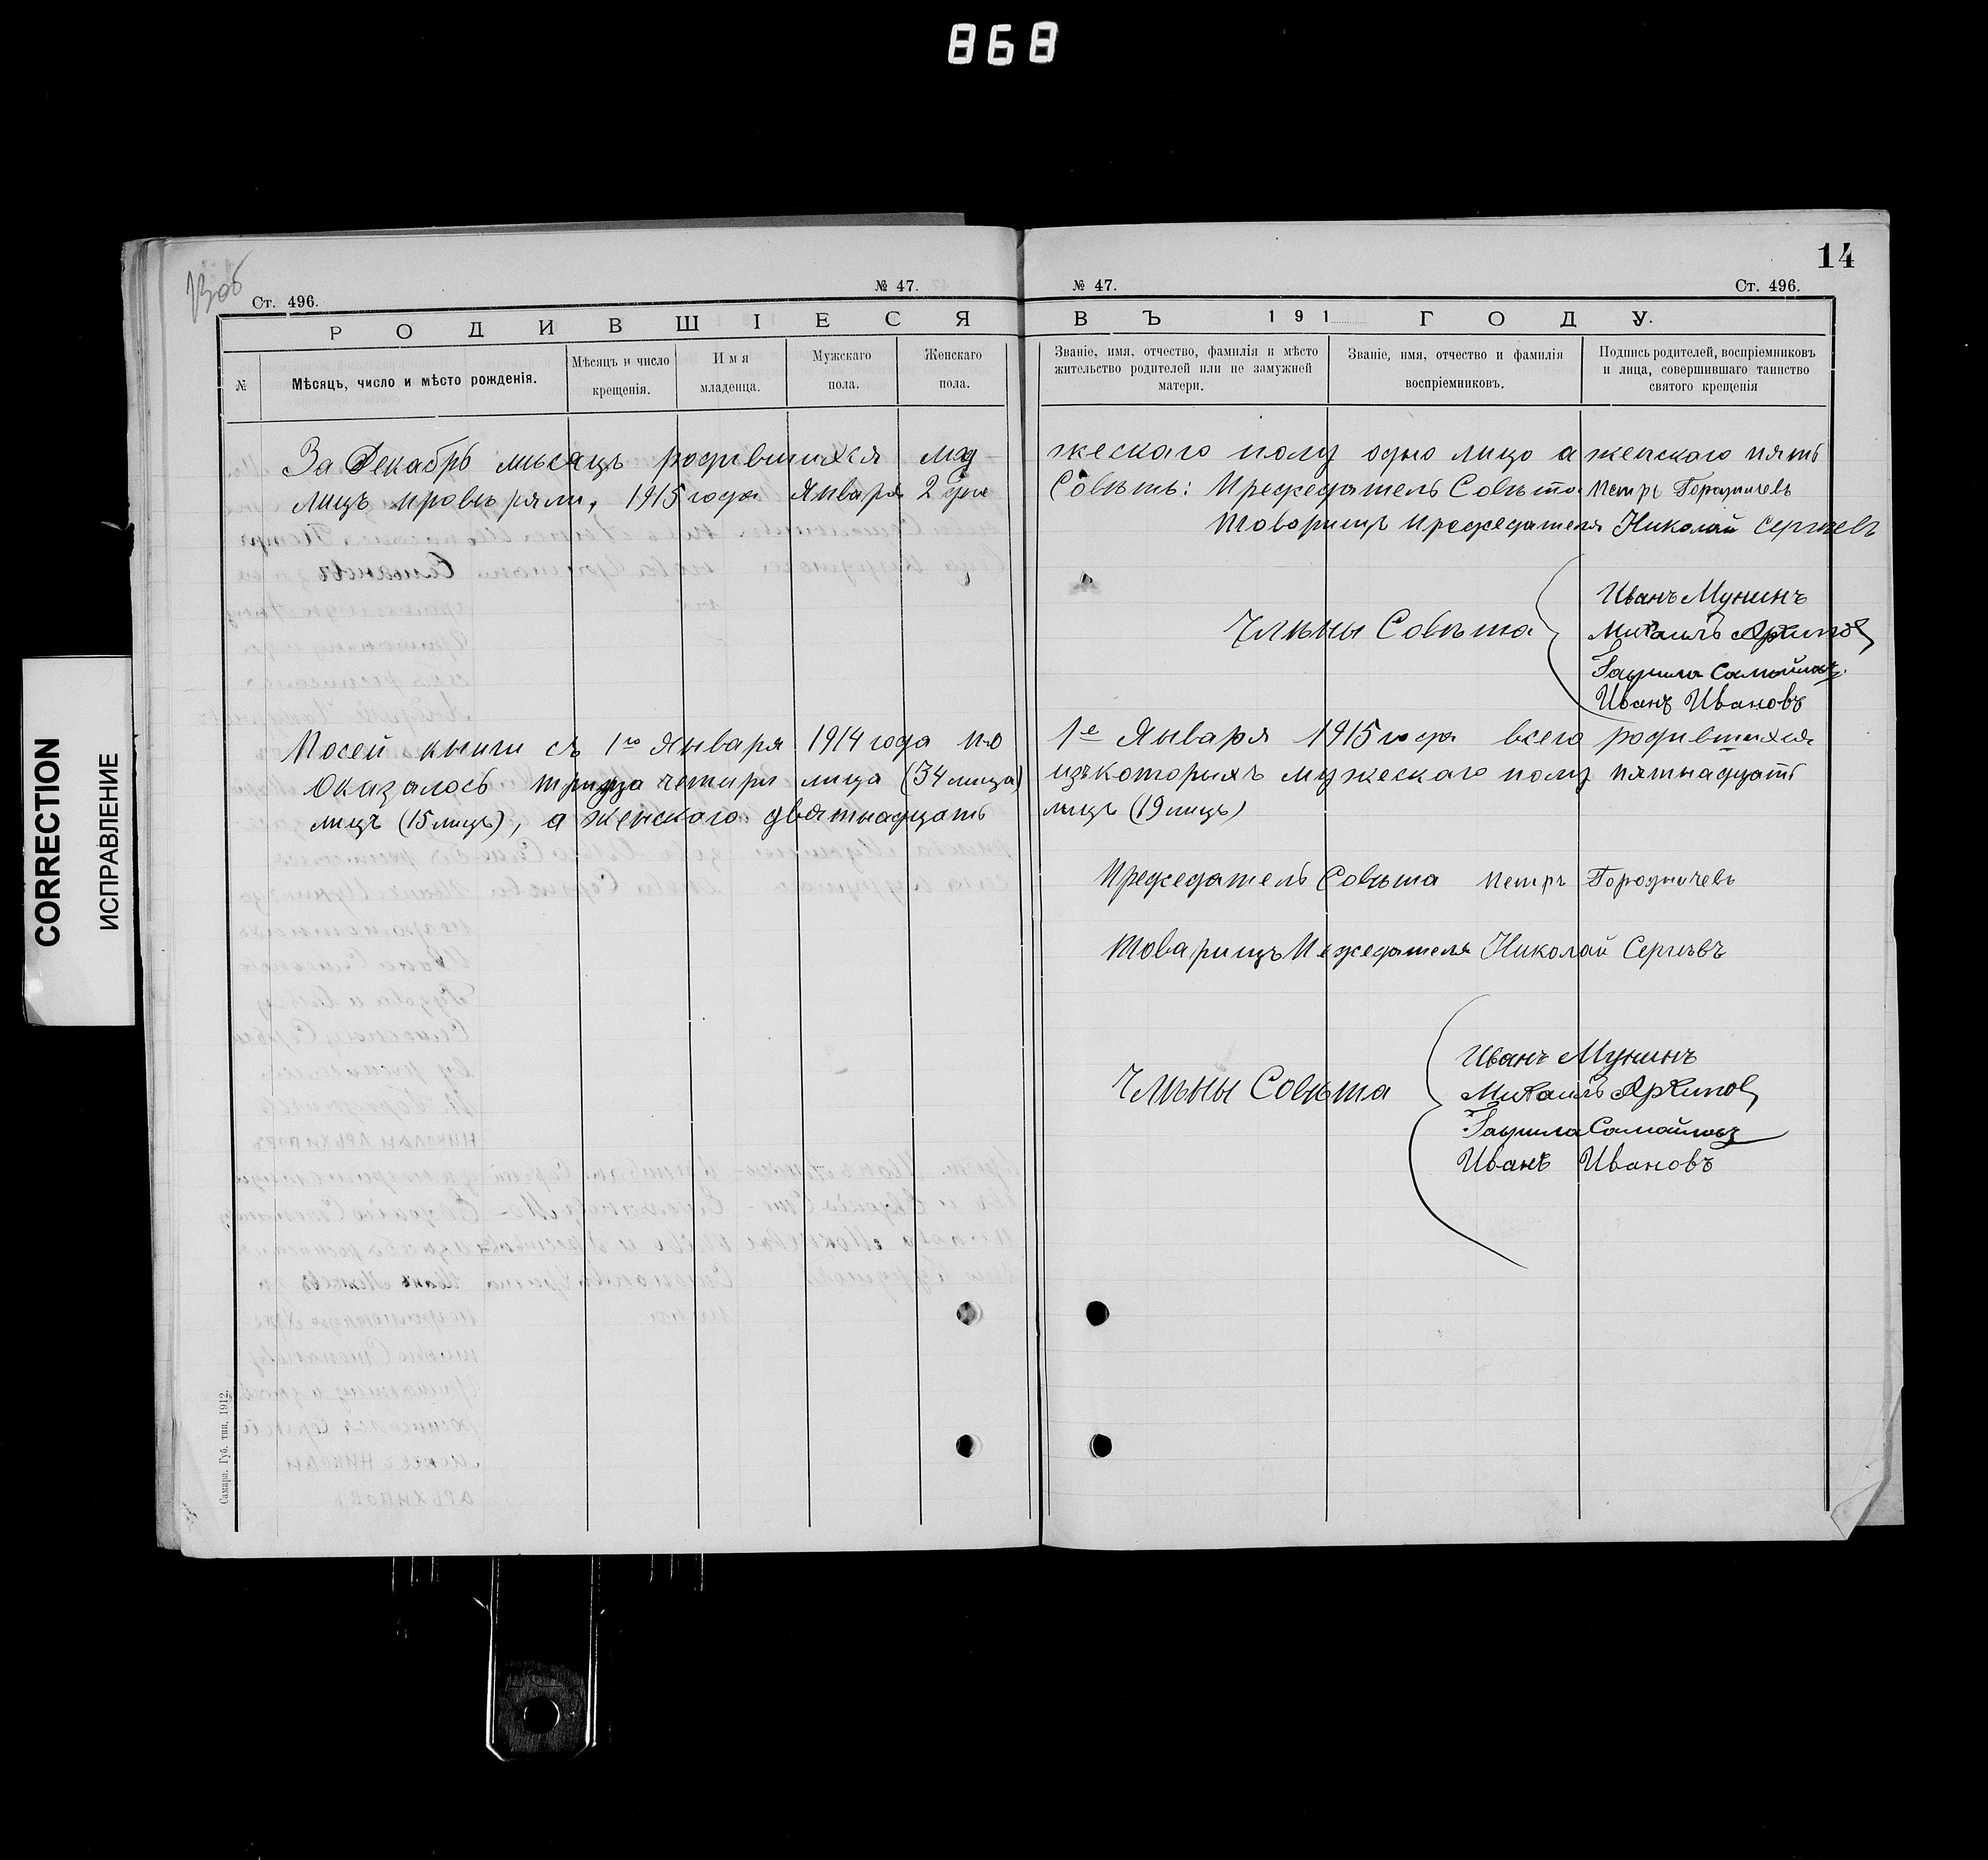 868
14
Ст. 496. № 47.
№ 47. Ст. 496.
РОДИВШІЕСЯ ВЪ 191 ГОДУ.
№
Мѣсяцъ, число и мѣсто рожденія.
Мѣсяцъ и число крещенія.
Имя младенца.
Мужскаго пола.
Женскаго пола.
Званіе, имя, отчество, фамилія и мѣсто жительство родителей или не замужней матери.
Званіе, имя, отчество и фамилія воспріемниковъ.
Подпись родителей, воспріемниковъ и лица, совершившаго таинство святого крещенія
За Декабрь мѣсяцъ родившихся му жескаго полу одно лицо а женскаго пять
лицъ провѣряли, 1915 года Января 2 дня Совѣтъ: Предсѣдатель Совѣта Петръ Городничевъ
Товарищъ Предсѣдателя Николай Сергѣевъ
Члѣны Совѣта
Иванъ Мунинъ
Михаилъ Архипов
Гаврила Самойловъ
Иванъ Ивановъ
Посей книги съ 1го Января 1914 года по 1е Января 1915 года всего родившихся
оказалось тридца четыри лица (34 лица) изъ которихъ мужескаго полу пятнадцать
лицъ (15 лицъ), а женскаго двятнадцать лицъ (19 лицъ)
Предсѣдатель Совѣта Петръ Городничевъ
Товарищъ Педседателя Николай Сергѣевъ
Члѣны Совѣта
Иванъ Мунинъ
Михаилъ Архипов
Гаврила Самойловъ
Иванъ Ивановъ
Самара. Губ. тип. 1912.
CORRECTION
ИСПРАВЛЕНИЕ